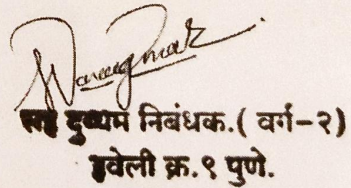 सह दुय्यम निबंधक.( वर्ग-२)
हवेली क्र.९ पुणे.